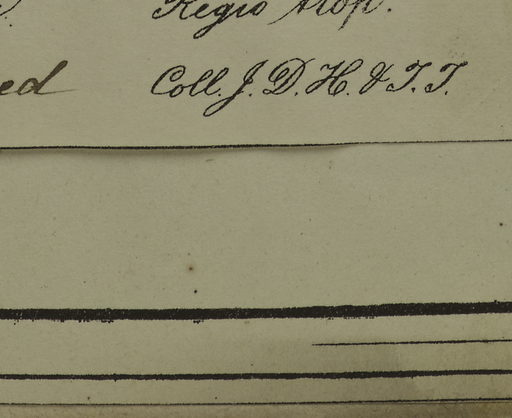 Regio trop.
ed Coll. J. D. H. & T. T.